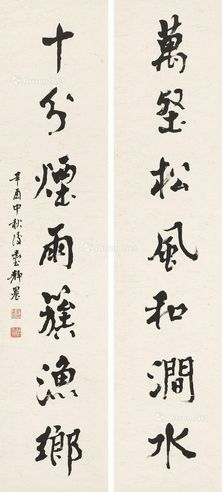 萬壑松風和澗水
十分煙雨簇漁鄉
辛酉中秋後臺靜農